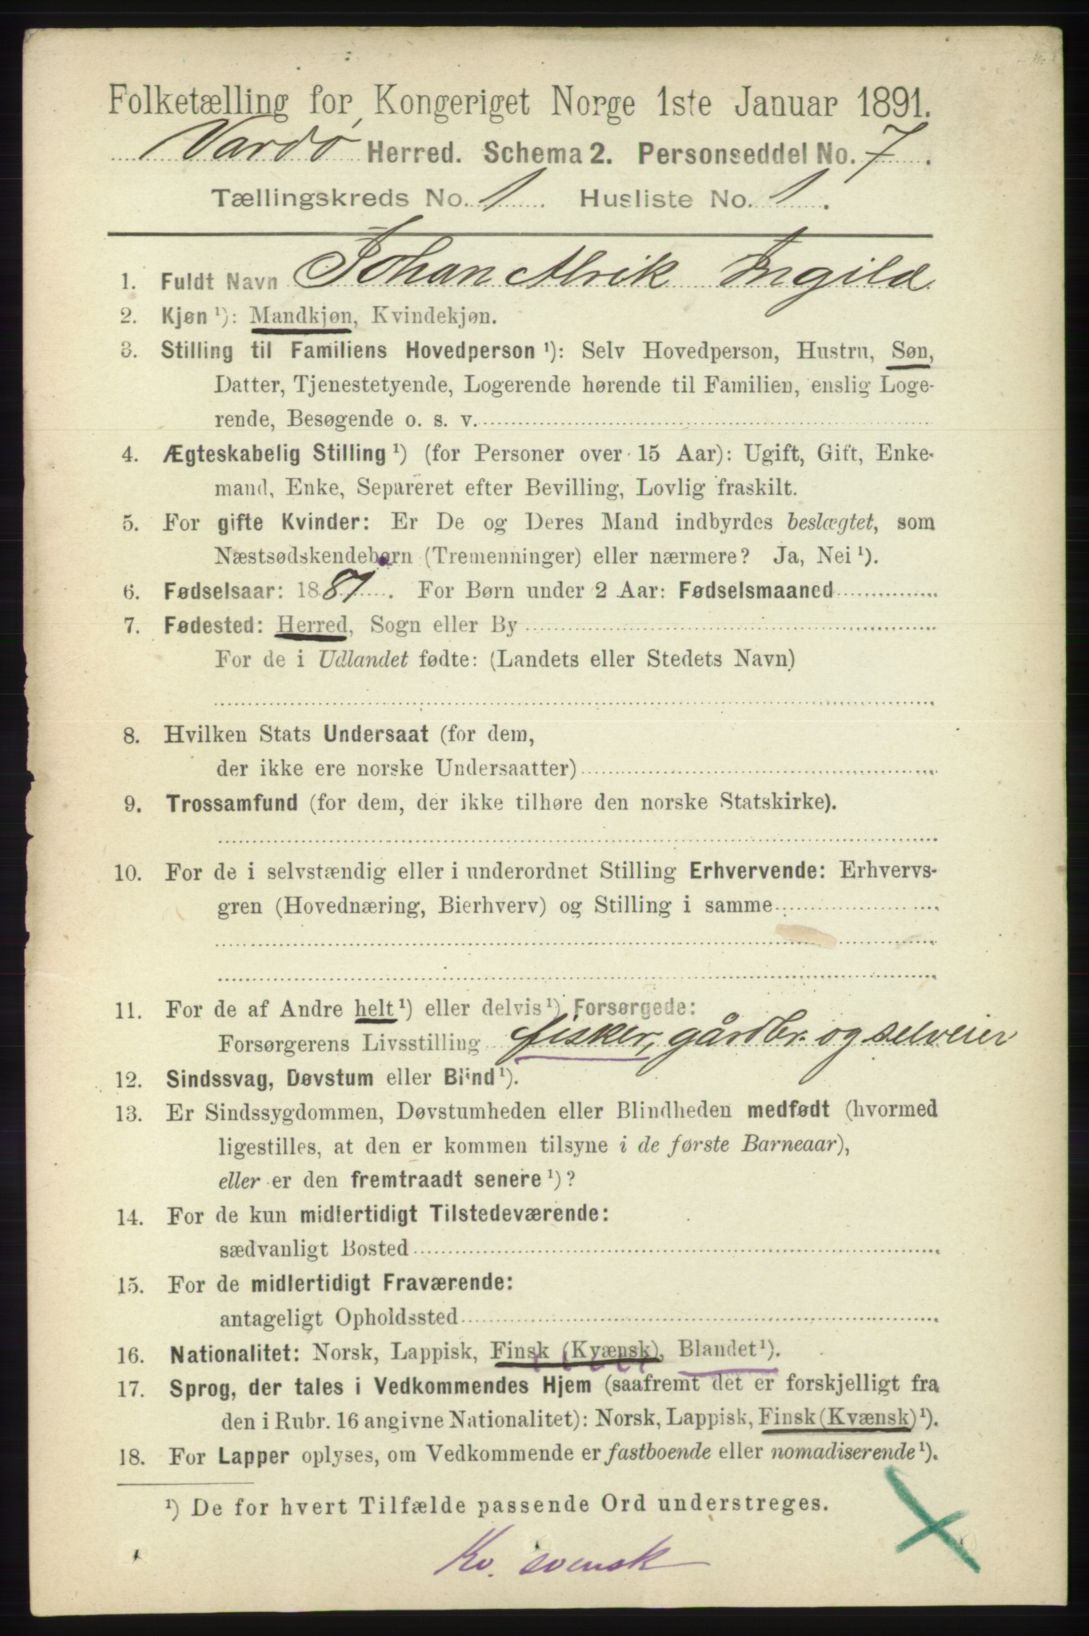 Folketælling for Kongeriget Norge 1ste Januar 1891.
Vardø Herred. Schema 2. Personseddel No. 7.
Tællingskreds No. 1. Husliste No. 1.
1. Fuldt Navn Johan Alrik Ingild
2. Kjøn ¹): Mandkjøn, Kvindekjøn.
3. Stilling til Familiens Hovedperson ¹): Selv Hovedperson, Hustru, Søn,
Datter, Tjenestetyende, Logerende hørende til Familien, enslig Loge-
rende, Besøgende o. s. v.
4. Ægteskabelig Stilling ¹) (for Personer over 15 Aar): Ugift, Gift, Enke-
mand, Enke, Separeret efter Bevilling, Lovlig fraskilt.
5. For gifte Kvinder: Er De og Deres Mand indbyrdes beslægtet, som
Næstsødskendebørn (Tremenninger) eller nærmere? Ja, Nei ¹).
6. Fødselsaar: 1881. For Børn under 2 Aar: Fødselsmaaned
7. Fødested: Herred, Sogn eller By
For de i Udlandet fødte: (Landets eller Stedets Navn)
8. Hvilken Stats Undersaat (for dem,
der ikke ere norske Undersaatter)
9. Trossamfund (for dem, der ikke tilhøre den norske Statskirke).
10. For de i selvstændig eller i underordnet Stilling Erhvervende: Erhvervs-
gren (Hovednæring, Bierhverv) og Stilling i samme
11. For de af Andre helt ¹) eller delvis ¹) Forsørgede:
Forsørgerens Livsstilling fisker, gårdbr. og selveier
12. Sindssvag, Døvstum eller Blind ¹).
13. Er Sindssygdommen, Døvstumheden eller Blindheden medfødt (hvormed
ligestilles, at den er kommen tilsyne i de første Barneaar),
eller er den fremtraadt senere ¹)?
14. For de kun midlertidigt Tilstedeværende:
sædvanligt Bosted
15. For de midlertidigt Fraværende:
antageligt Opholdssted
16. Nationalitet: Norsk, Lappisk, Finsk (Kvænsk), Blandet ¹).
17. Sprog, der tales i Vedkommendes Hjem (saafremt det er forskjelligt fra
den i Rubr. 16 angivne Nationalitet): Norsk, Lappisk, Finsk (Kvænsk) ¹).
18. For Lapper oplyses, om Vedkommende er fastboende eller nomadiserende ¹).
¹) De for hvert Tilfælde passende Ord understreges.
Kv. svensk